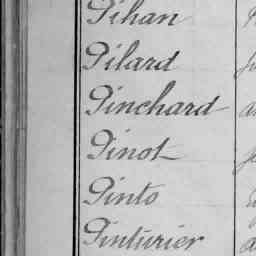 Pihan
Pilard
Pinchard
Pinot
Pinto
Pinturier